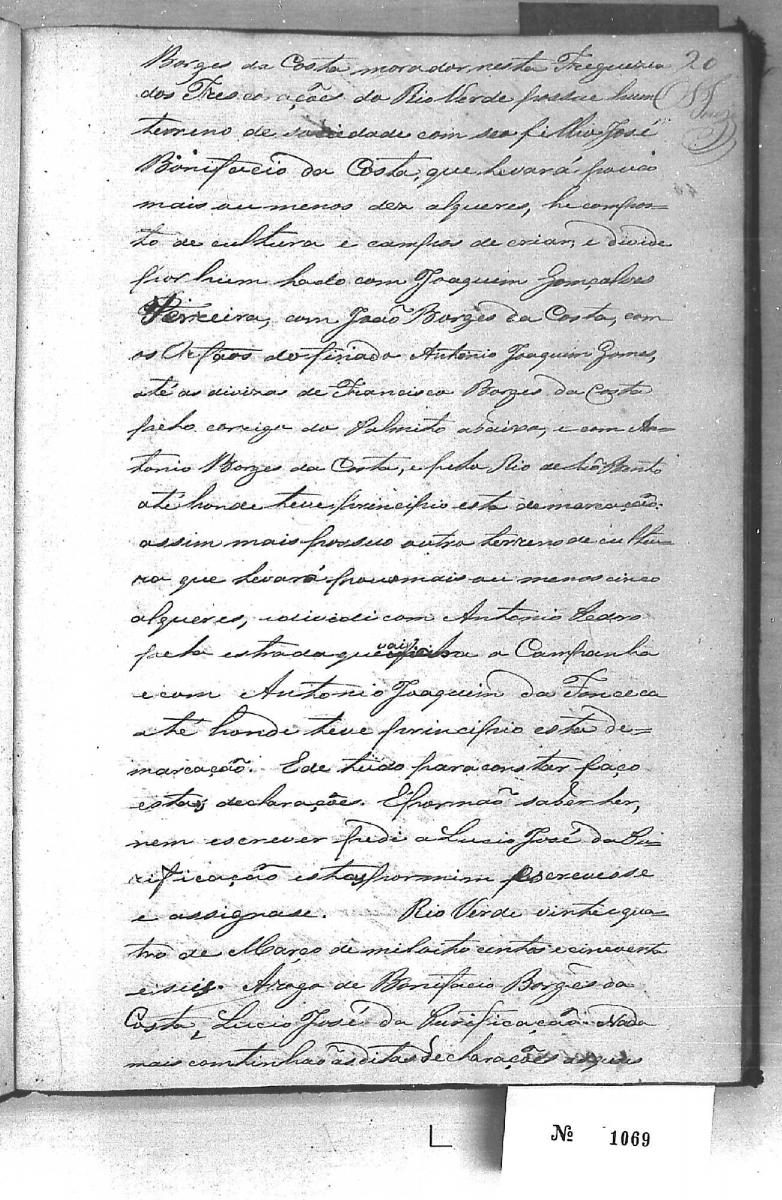 20
Borges da Costa morador nesta Freguezia
dos Tres corações do Rio Verde possue hum
terreno de sociedade com seo filho José
Bonifacio da Costa, que levará pouco
mais ou menos dez alqueres, he compos-
to de cultura e campos de criar, e divide
por hum lado com Joaquim Gonçalves
Ferreira, com João Borges da Costa, com
os Orfãos do finado Antonio Joaquim Gomes,
até as divizas de Francisco Borges da Costa
pelo corrigo do Palmito abaixo, e com An-
tonio Borges da Costa, e pelo Rio de São Bento
até honde teve principio esta demarcação.
assim mais possuo outro terreno de cultu-
ra que levará pouco mais ou menos cinco
alqueres, e divide com Antonio Pedro
pela estrada que vai para a Campanha
e com Antonio Joaquim da Fonceca
até honde teve principio esta de-
marcação. E de tudo para constar faço
estas declarações. E por não saber ler,
nem escrever pedi a Lucio José da Pu-
rificação esta por mim escrevesse
e assignase. Rio Verde vinte e qua-
tro de Março de mil oito centos e cincoenta
e seis. Arogo de Bonifacio Borges da
Costa, Lucio José da Purificação. Nada
mais continhão as ditas declarações
Nº 1069